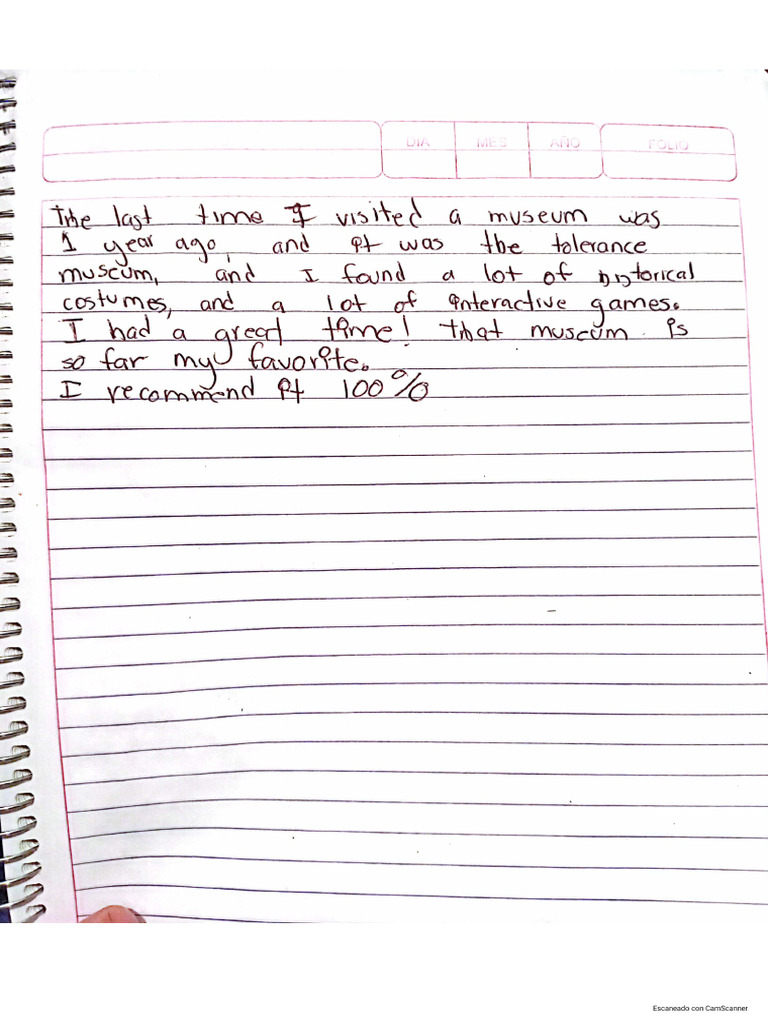 DIA MES AÑO FOLIO
The last time I visited a museum was
1 year ago, and it was the tolerance
museum, and I found a lot of historical
costumes, and a lot of interactive games.
I had a great time! that museum is
so far my favorite.
I recommend it 100%
Escaneado con CamScanner